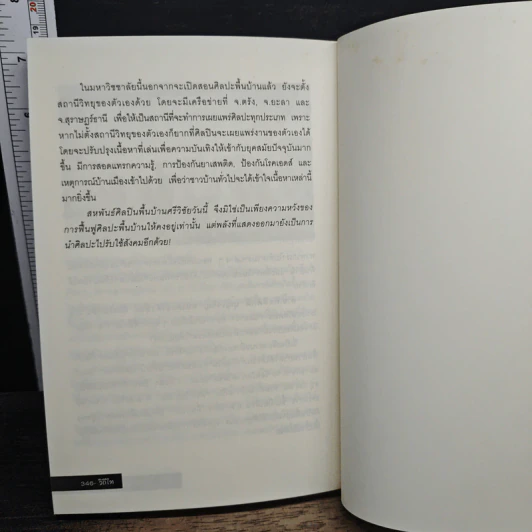 ในมหาวิชชาลัยนี้นอกจากจะเปิดสอนศิลปะพื้นบ้านแล้ว ยังจะตั้ง
สถานีวิทยุของตัวเองด้วย โดยจะมีเครือข่ายที่ จ.ตรัง, จ.ยะลา และ
จ.สุราษฎร์ธานี เพื่อให้เป็นสถานีที่จะทำการเผยแพร่ศิลปะทุกประเภท เพราะ
หากไม่ตั้งสถานีวิทยุของตัวเองก็ยากที่ศิลปินจะเผยแพร่งานของตัวเองได้
โดยจะปรับปรุงเนื้อหาที่เล่นเพื่อความบันเทิงให้เข้ากับยุคสมัยปัจจุบันมาก
ขึ้น มีการสอดแทรกความรู้, การป้องกันยาเสพติด, ป้องกันโรคเอดส์ และ
เหตุการณ์บ้านเมืองเข้าไปด้วย เพื่อว่าชาวบ้านทั่วไปจะได้เข้าใจเนื้อหาเหล่านี้
มากยิ่งขึ้น
สหพันธ์ศิลปินพื้นบ้านศรีวิชัยวันนี้ จึงมิใช่เป็นเพียงความหวังของ
การฟื้นฟูศิลปะพื้นบ้านให้คงอยู่เท่านั้น แต่พลังที่แสดงออกมายังเป็นการ
นำศิลปะไปรับใช้สังคมอีกด้วย!
346
7
6
20
19